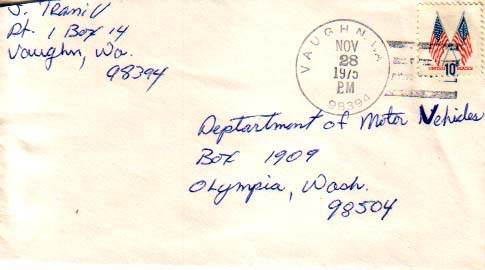 Rt. 1 Box 14
Vaughn, Wa.
98394
VAUGHN,
NOV
28
1975
PM
98394
10¢
Deptartment of Motor Vehicles
Box 1909
Olympia, Wash.
98504